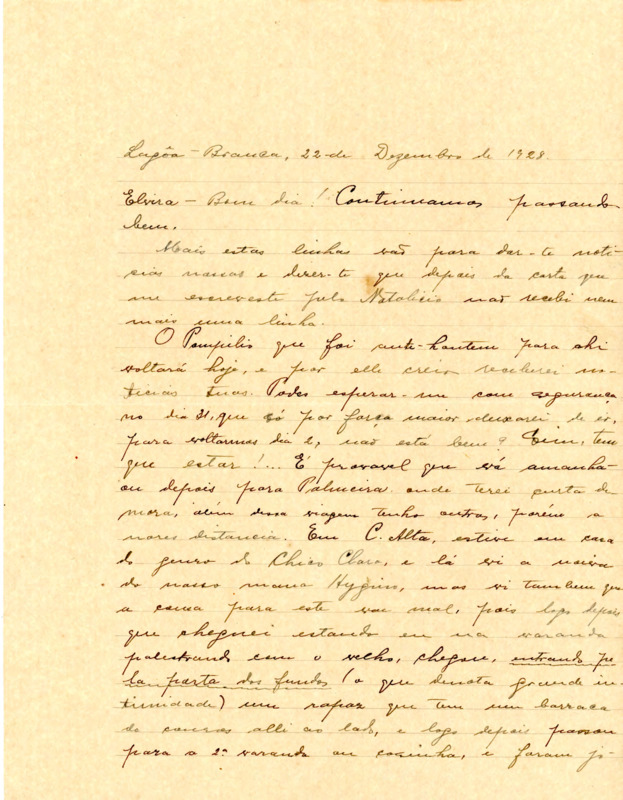 Lagôa-Branca, 22 de Dezembro de 1928.
Elvira - Bom dia! Continuamos passando
bem.
Mais estas linhas vão para dar-te noti-
cias nossas e dizer-te que depois da carta que
me escreveste pelo Natalisio não recebi nem
mais uma linha.
O Pompilio que foi ante-hontem para ahi
voltará hoje, e por elle creio receberei no-
ticias tuas. Podes esperar-me com segurança
no dia 31, que só por força maior deixarei de ir,
para voltarmos dia 2, não está bem? Sim, tem
que estar!... É provavel que vá amanhã
ou depois para Palmeira onde terei curta de-
mora, além dessa viagem tenho outras, porém a
nores distancia. Em C. Alta, estive em casa
do genro do Chico Claro, e lá vi a noiva
do nosso mano Hygino, mas vi tambem que
a cousa para este vae mal, pois logo depois
que cheguei estando eu na varanda
palestrando com o velho, chegou, entrando pe-
la porta dos fundos (o que denota grande in-
timidade) um rapaz que tem um barraca
de couros alli ao lado, e logo depois passou
para a 2ª varanda ou cosinha, e foram jo-